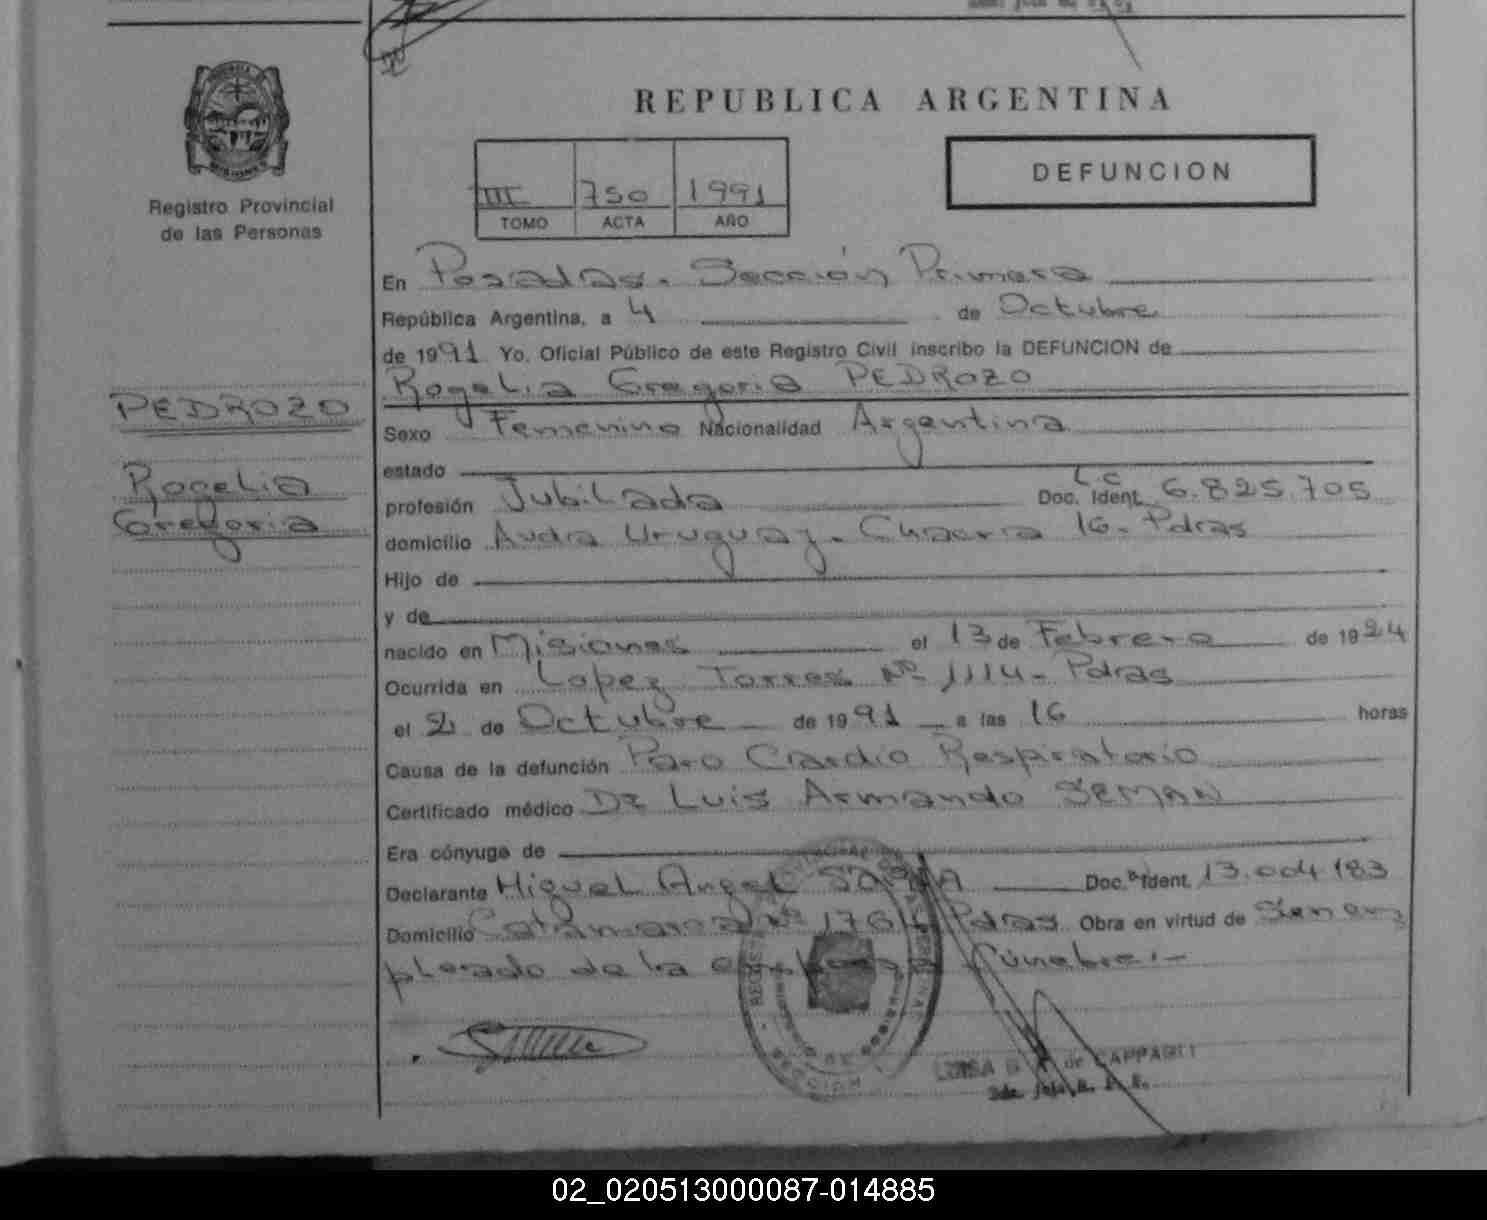 REPUBLICA ARGENTINA
Registro Provincial
de las Personas
III 750 1991
TOMO ACTA AÑO
DEFUNCION
En Posadas. Sección Primera
República Argentina, a 4 de Octubre
de 1991 Yo, Oficial Público de este Registro Civil inscribo la DEFUNCION de
Rogelia Gregoria PEDROZO
PEDROZO
Rogelia
Gregoria
Sexo Femenino Nacionalidad Argentina
estado
profesión Jubilada Doc. Ident. L.C 6.825.705
domicilio Avda Uruguay. Chacra 16- Pdras
Hijo de
y de
nacido en Misiones el 13 de Febrero de 1924
Ocurrida en Lopez Torres Nº 1114- Pdras
el 2 de Octubre de 1991 a las 16 horas
Causa de la defunción Paro Cardio Respiratorio
Certificado médico Dr Luis Armando SEMAN
Era cónyuge de
Declarante Miguel Angel Doc. Ident. 13.004.183
Domicilio Catamarca Nº Pdras. Obra en virtud de Ser em
pleado de la Fúnebre.-
de CAPPAGLI
02_020513000087-014885